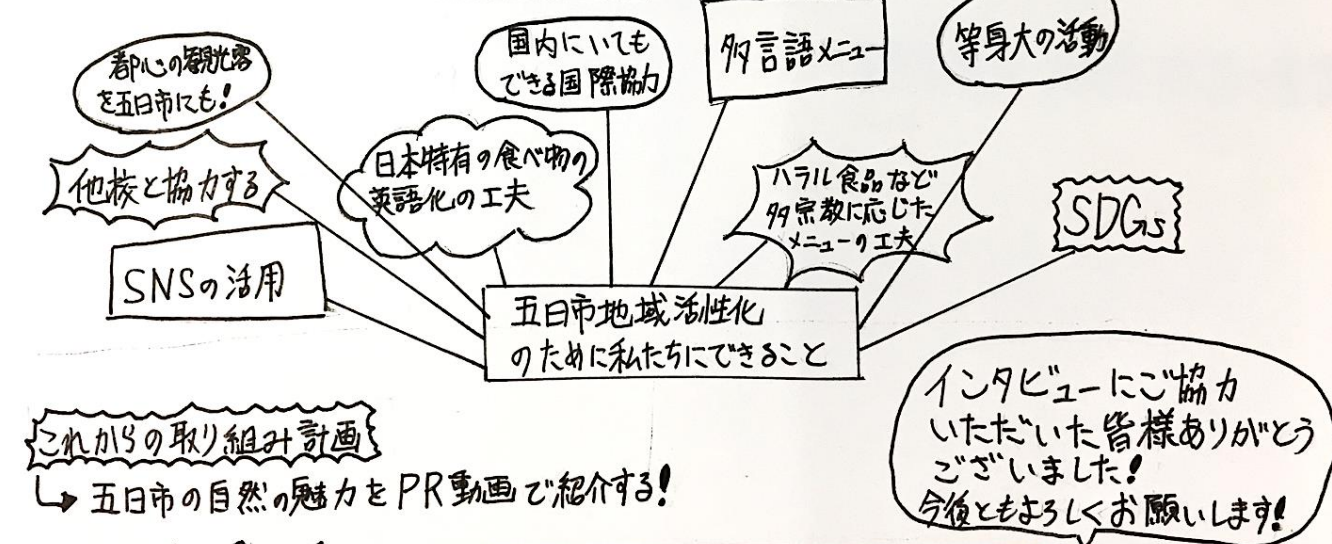 都心の観光客
を五日市にも!
国内にいても
できる国際協力
多言語メニュー
等身大の活動
他校と協力する
日本特有の食べ物の
英語化の工夫
ハラル食品など
多宗教に応じた
メニューの工夫
SDGs
SNSの活用
五日市地域活性化
のために私たちにできること
これからの取り組み計画
↳ 五日市の自然の魅力をPR動画で紹介する!
インタビューにご協力
いただいた皆様ありがとう
ございました!
今後ともよろしくお願いします!